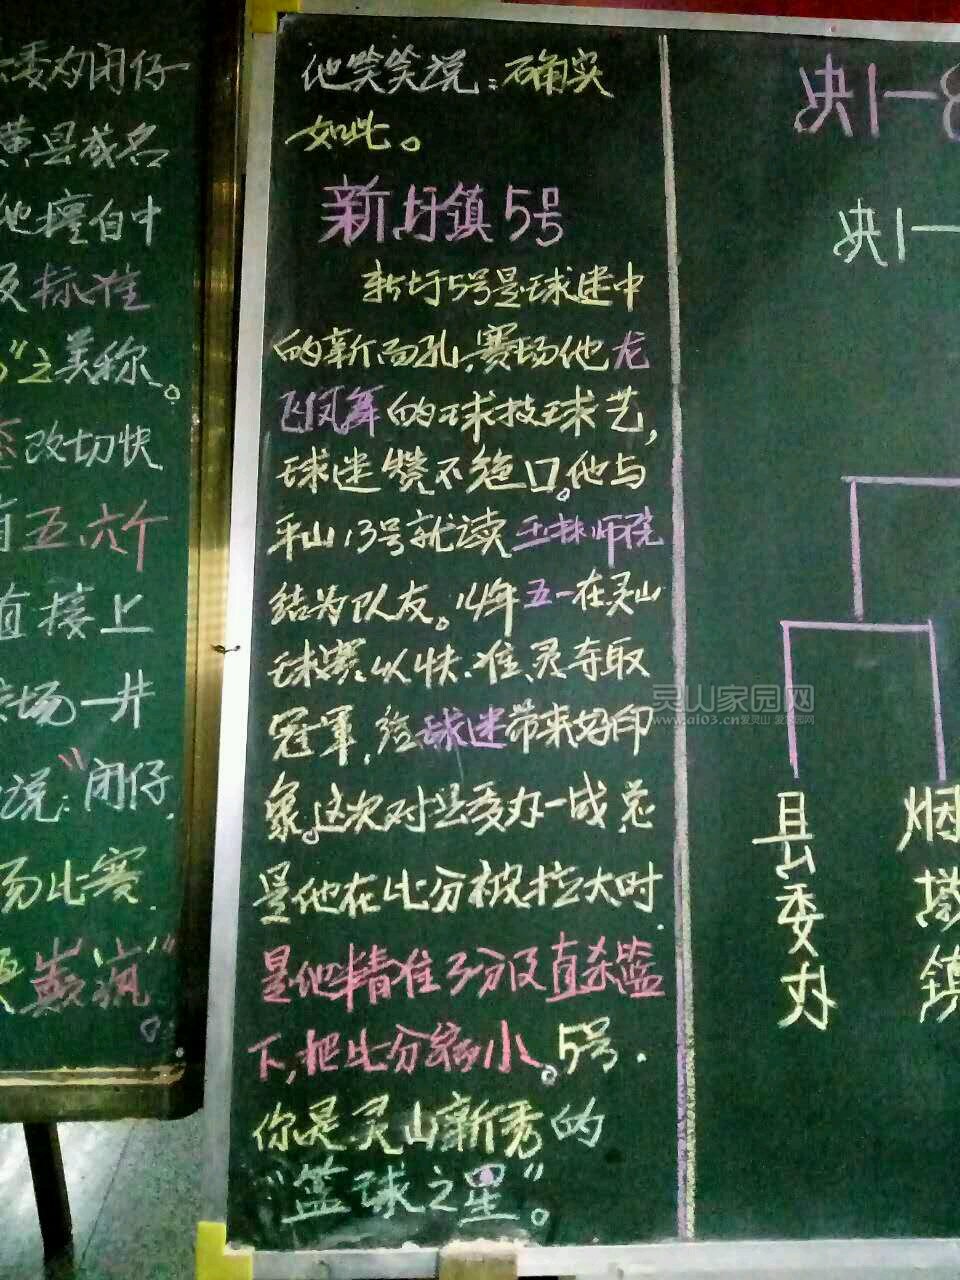 委办闭仔
黄县成名
他擅自中
及标准
”之美称。
改切快
有五.六个
直接上
场一井
说:“闭仔.
场比赛.
更癫疯”。
他笑笑说:确实
如此。
新圩镇5号
新圩5号是球迷中
的新面孔,赛场他龙
飞凤舞的球技球艺,
球迷赞不绝口。他与
平山13号就读玉林师院
结为队友。14年五一在灵山
球赛以快.准.灵夺取
冠軍,给球迷带来好印
象。这次对县委办一战,总
是他在比分被拉大时.
是他精准3分及直杀篮
下,把比分缩小。5号.
你是灵山新秀的
“篮球之星”。
决1-8
决1-
县委办
烟墩镇
灵山家园网
www.ai03.cn爱灵山 爱家园网